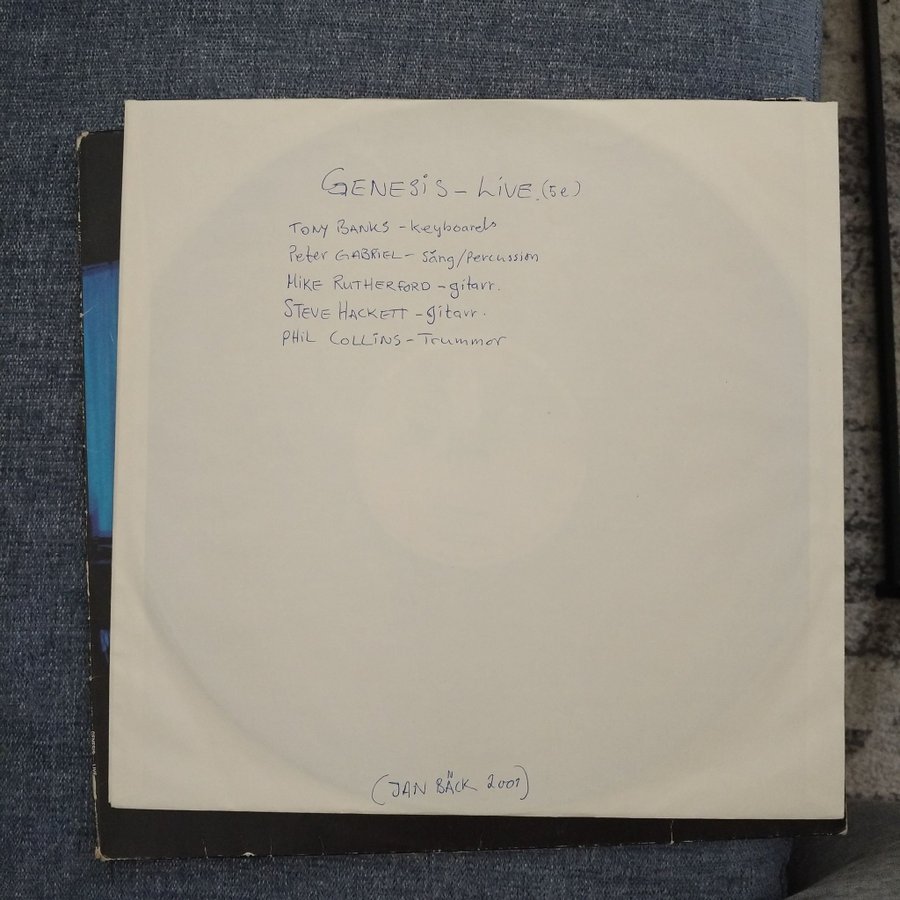 GENESIS - LIVE. (5e)
TONY BANKS - keyboards
Peter GABRIEL - Sång/Percussion
MIKE RUTHERFORD - gitarr.
STEVE HACKETT - gitarr.
PHIL COLLINS - Trummor
(JAN BÄCK 2001)
GENESIS